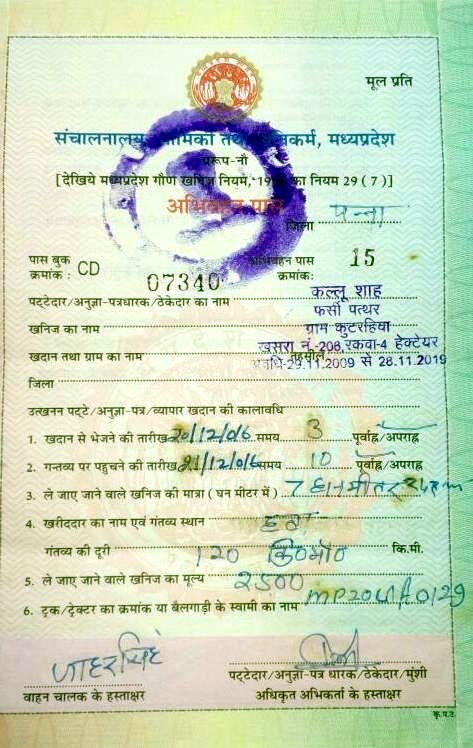 मूल प्रति
संचालनालय, भौमिकी तथा खनिकर्म, मध्यप्रदेश
प्ररूप-नौ
[देखिये मध्यप्रदेश गौण खनिज नियम, का नियम 29 (7)]
अभिवहन पास
जिला पन्ना
पास बुक क्रमांक : CD 07340 अभिवहन पास क्रमांक: 15
पट्टेदार/अनुज्ञा-पत्रधारक/ठेकेदार का नाम कल्लू शाह
फर्सी पत्थर
खनिज का नाम ग्राम कुटरहिया
खदान तथा ग्राम का नाम तहसील खसरा नं.-206, रकवा-4 हेक्टेयर
अवधि-29.11.2009 से 28.11.2019
जिला
उत्खनन पट्टे/अनुज्ञा-पत्र/व्यापार खदान की कालावधि
1. खदान से भेजने की तारीख 20/12/016 समय 3 पूर्वाह्न/अपराह्न
2. गन्तव्य पर पहुचने की तारीख 21/12/016 समय 10 पूर्वाह्न/अपराह्न
3. ले जाए जाने वाले खनिज की मात्रा (घन मीटर में) 7 घनमीटर
4. खरीददार का नाम एवं गंतव्य स्थान
गंतव्य की दूरी 120 कि०मी० कि.मी.
5. ले जाए जाने वाले खनिज का मूल्य 2500
6. ट्रक/ट्रेक्टर का क्रमांक या बैलगाड़ी के स्वामी का नाम
वाहन चालक के हस्ताक्षर
पट्टेदार/अनुज्ञा-पत्र धारक/ठेकेदार/मुंशी
अधिकृत अभिकर्ता के हस्ताक्षर